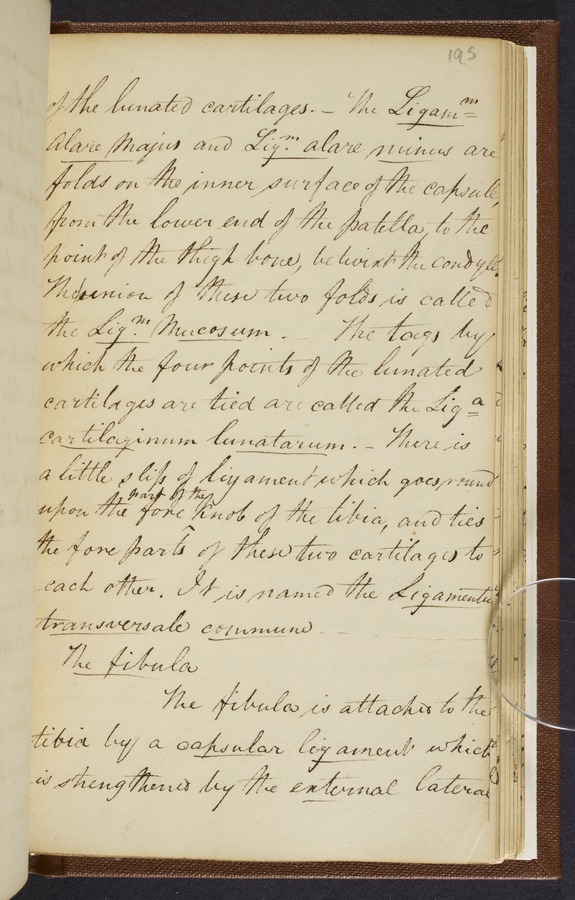 195
of the lunated cartilages. – The Ligamm=
alare majus and Ligm. alare minus are
folds on the inner surface of the capsule,
from the lower end of the patella, to the
point of the thigh bone, betwixt the condyle.
The union of these two folds is called
the Ligm. Mucosum. – The tags by
which the four points of the lunated
cartilages are tied are called the Liga=
cartilaginum lunatarum. – There is
a little slip of ligament which goes round
part of the
upon the fore knob of the tibia, and ties
the fore parts of these two cartilages to
each other. It is named the Ligamentu
transversale commune. –
The fibula
The fibula is attached to the
tibia by a capsular ligament which
is strengthened by the external lateral